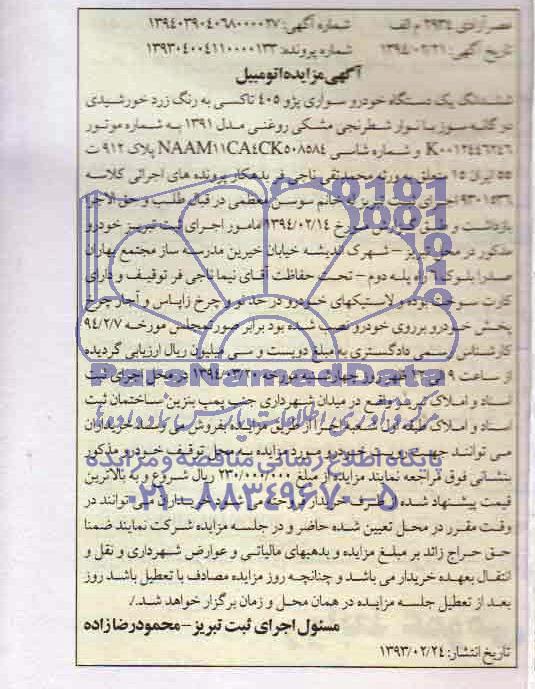 نصر آزادی ۲۹۳۴ م الف شماره آگهی: ۱۳۹۴۰۳۹۰۴۰۶۸۰۰۰۰۲۷
تاریخ آگهی: ۱۳۹۴/۰۲/۲۱ شماره پرونده: ۱۳۹۳۰۴۰۰۴۱۱۰۰۰۰۱۳۳
آگهی مزایده اتومبیل
ششدانگ یک دستگاه خودرو سواری پژو ۴۰۵ تاکسی به رنگ زرد خورشیدی
دوگانه سوز با نوار شطرنجی مشکی روغنی مدل ۱۳۹۱ به شماره موتور
K۰۰۱۲۴۴۶۲۴۶ و شماره شاسی NAAM۱۱CA۴CK۵۰۸۵۸۴ پلاک ۹۱۲ ت
۵۵ ایران ۱۵ متعلق به ورثه محمدتقی ناجی فر بدهکار پرونده های اجرائی کلاسه
۹۳۰۱۵۳۶ اجرای ثبت تبریز که خانم سوسن معظمی در قبال طلب و حق الاجرا
بازداشت و طبق گزارش مورخ ۱۳۹۴/۰۲/۱۴ مامور اجرای ثبت تبریز خودرو
مذکور در محل تبریز - شهرک اندیشه خیابان خیرین مدرسه ساز مجتمع بهاران
صدرا بلوک ۶ راه پله دوم - تحت حفاظت آقای نیما ناجی فر توقیف و دارای
کارت سوخت بوده و لاستیکهای خودرو در حد نو و چرخ زاپاس و آچار چرخ
پخش خودرو برروی خودرو نصب شده بود برابر صورتمجلس مورخه ۹۴/۲/۷
کارشناس رسمی دادگستری به مبلغ دویست و سی میلیون ریال ارزیابی گردیده
از ساعت ۹ الی ۱۲ ظهر روز چهارشنبه مورخه ۱۳۹۴/۰۳/۲۰ در محل اجرای ثبت
اسناد و املاک تبریز واقع در میدان شهرداری جنب پمپ بنزین ساختمان ثبت
اسناد و املاک طبقه اول شعبه اجرا از طریق مزایده بفروش می رسد خریداران
می توانند جهت رویت خودرو مورد مزایده به محل توقیف خودرو مذکور
بنشانی فوق مراجعه نمایند مزایده از مبلغ ۲۳۰/۰۰۰/۰۰۰ ریال شروع و به بالاترین
قیمت پیشنهاد شده از طرف خریدار فروخته می شود خریداران می توانند در
وقت مقرر در محل تعیین شده حاضر و در جلسه مزایده شرکت نمایند ضمنا
حق حراج زائد بر مبلغ مزایده و بدهیهای مالیاتی و عوارض شهرداری و نقل و
انتقال بعهده خریدار می باشد و چنانچه روز مزایده مصادف با تعطیل باشد روز
بعد از تعطیل جلسه مزایده در همان محل و زمان برگزار خواهد شد./
مسئول اجرای ثبت تبریز - محمود رضازاده
تاریخ انتشار: ۱۳۹۳/۰۲/۲۴
ParsNamadData
پایگاه اطلاع رسانی مناقصه و مزایده
۰۲۱-۸۸۳۴۹۶۷۰-۵